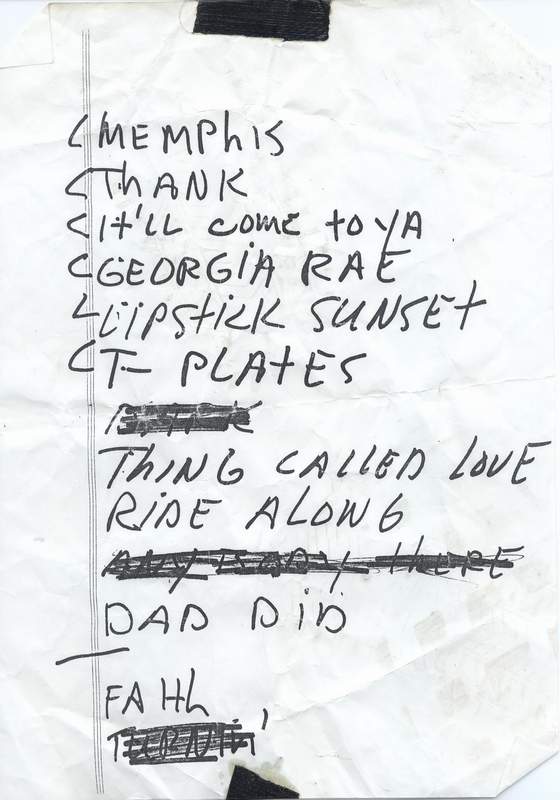 MEMPhiS
ThANK
it'LL come to YA
GEORGiA RAE
LiPStiCK SUNSEt
T- PLAtES
ThiNG CALLED LOVE
RiDE ALONG
ANY BODY thERE
DAD DiD
FAith